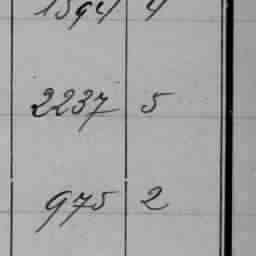 1594 4
2237 5
975 2